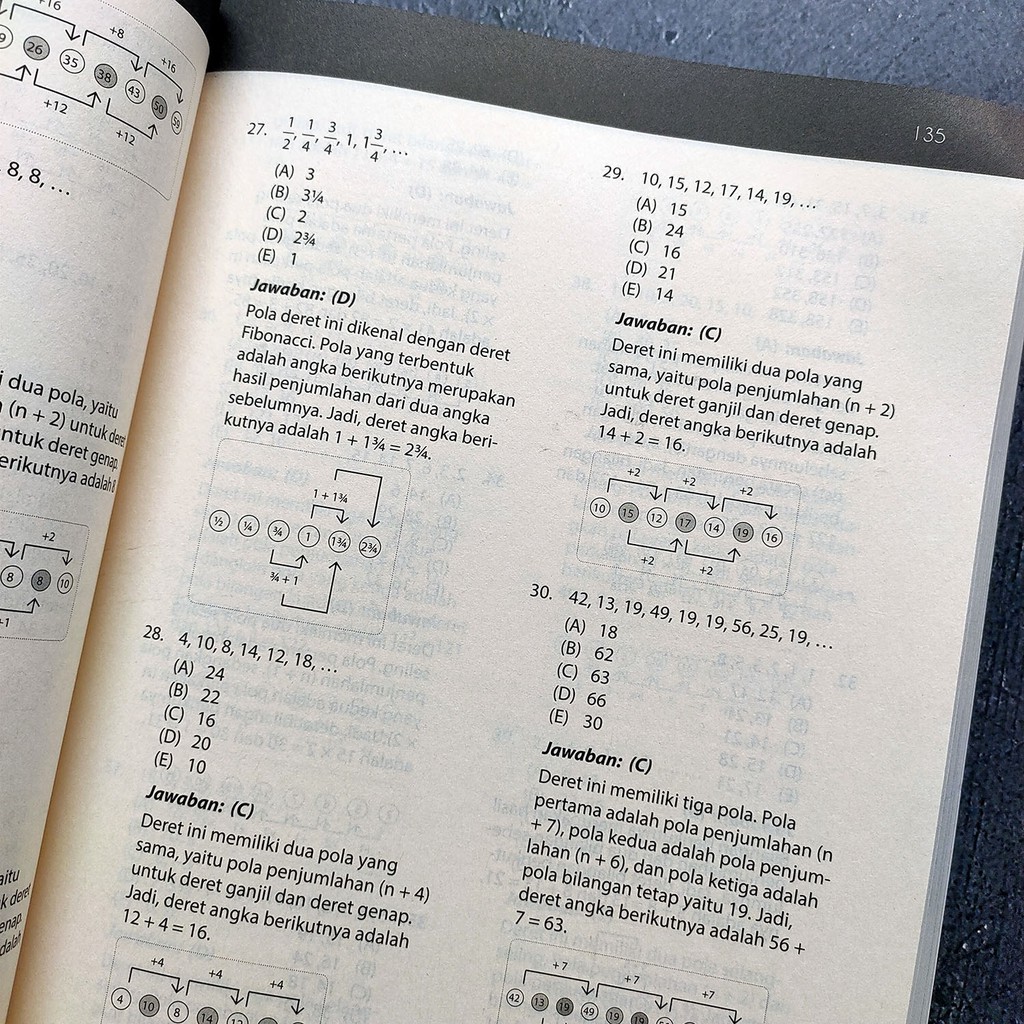 +16
+8
+16
9 26 35 38 43 50 59
+12
+12
8, 8, …
i dua pola, yaitu
(n + 2) untuk deret
ntuk deret genap.
erikutnya adalah 8
+2
8 8 10
+1
aitu
k deret
enap.
dalah
135
27. 1/2, 1/4, 3/4, 1, 1 3/4, …
(A) 3
(B) 3¼
(C) 2
(D) 2¾
(E) 1
Jawaban: (D)
Pola deret ini dikenal dengan deret
Fibonacci. Pola yang terbentuk
adalah angka berikutnya merupakan
hasil penjumlahan dari dua angka
sebelumnya. Jadi, deret angka beri-
kutnya adalah 1 + 1¾ = 2¾.
1 + 1¾
½ ¼ ¾ 1 1¾ 2¾
¾ + 1
28. 4, 10, 8, 14, 12, 18, …
(A) 24
(B) 22
(C) 16
(D) 20
(E) 10
Jawaban: (C)
Deret ini memiliki dua pola yang
sama, yaitu pola penjumlahan (n + 4)
untuk deret ganjil dan deret genap.
Jadi, deret angka berikutnya adalah
12 + 4 = 16.
+4
+4
+4
4 10 8 14 12
29. 10, 15, 12, 17, 14, 19, …
(A) 15
(B) 24
(C) 16
(D) 21
(E) 14
Jawaban: (C)
Deret ini memiliki dua pola yang
sama, yaitu pola penjumlahan (n + 2)
untuk deret ganjil dan deret genap.
Jadi, deret angka berikutnya adalah
14 + 2 = 16.
+2
+2
+2
10 15 12 17 14 19 16
+2
+2
30. 42, 13, 19, 49, 19, 19, 56, 25, 19, …
(A) 18
(B) 62
(C) 63
(D) 66
(E) 30
Jawaban: (C)
Deret ini memiliki tiga pola. Pola
pertama adalah pola penjumlahan (n
+ 7), pola kedua adalah pola penjum-
lahan (n + 6), dan pola ketiga adalah
pola bilangan tetap yaitu 19. Jadi,
deret angka berikutnya adalah 56 +
7 = 63.
+7
+7
+7
42 13 19 49 19 19